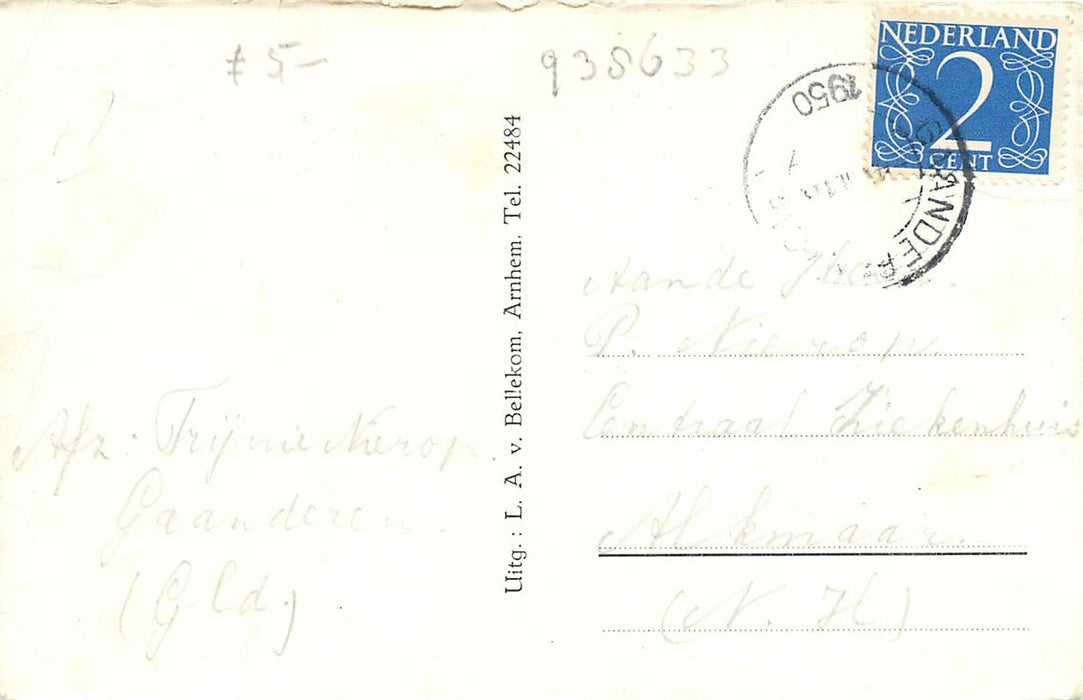 ≠ 5,-
938633
NEDERLAND
2
CENT
1950
GAANDEREN
Uitg. : L. A. v. Bellekom, Arnhem, Tel. 22484
Aan de Heer.
P. Nierop.
Centraal Ziekenhuis
Alkmaar.
(N. H)
Afz: Trijnie Nierop.
Gaanderen.
(Gld.)